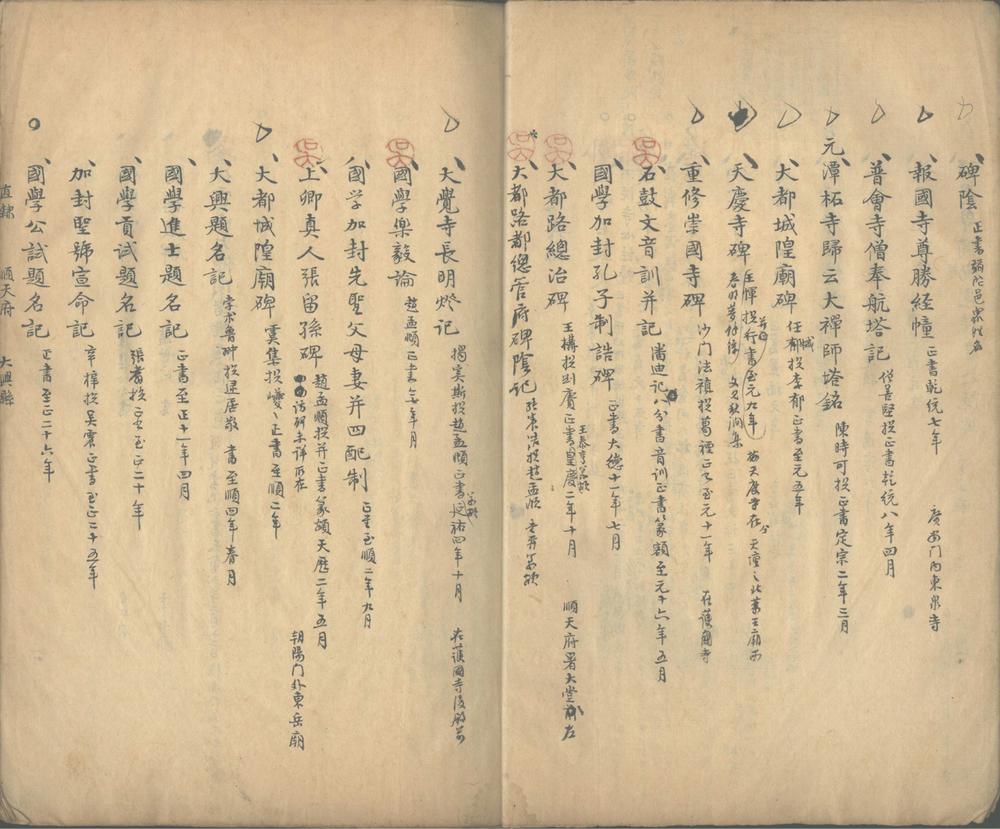 碑陰 正書彌陀邑眾姓名
報國寺尊勝經幢 正書乾統七年 廣安門內東泉寺
普會寺僧奉航塔記 僧善堅撰正書乾統八年四月
元潭柘寺歸云大禪師塔銘 陳時可撰正書定宗二年三月
大都城隍廟碑 任城撰李郁正書至元五年
天慶寺碑 王惲撰行書至元九年 天壇之北藥王廟西
重修崇國寺碑 沙门法禎撰正書至元十一年 在護國寺
石鼓文音訓并記 潘迪记八分書音訓正書篆額至元十六年五月
國學加封孔子制誥碑 正書大德十一年七月
大都路總治碑 王構撰劉賡正書皇慶二年十月 順天府署大堂前左
大都路都總管府碑陰記
大覺寺長明燈记 揭奚斯撰趙孟順正書延祐四年十月 在護國寺後殿前
國學樂毅論 趙孟順正書年月
國学加封先聖父母妻并四配制 正書至順二年九月
上卿真人張留孫碑 趙孟順撰并正書篆額天歷二年五月 朝陽门外東岳廟
訪碑录未詳所在
大都城隍廟碑 虞集撰巙巙正書至順二年
大興題名記 孛术魯翀撰 書至順四年春月
國學進士題名記 正書至正十一年四月
國學貢試題名記 張翥撰正書至正二十年
加封聖號宣命記 正書至正二十五年
國學公試題名記 正書至正二十六年
直隸 順天府 大興縣